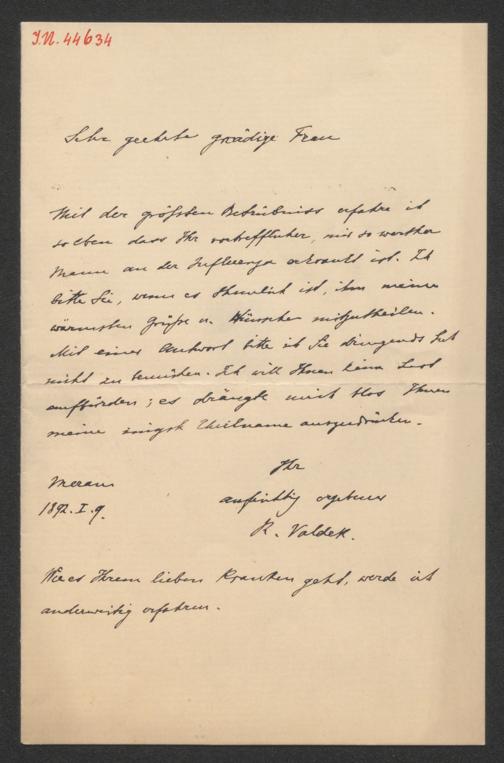 J.N. 44634
Sehr geehrte gnädige Frau
Mit der größten Betrübniss erfahre ich
soeben dass Ihr vortrefflicher, mir so werther
Mann an der Influenza erkrankt ist. Ich
bitte Sie, wenn es thunlich ist, ihm meine
wärmsten Grüße u. Wünsche mitzutheilen.
Mit einer Antwort bitte ich Sie dringends Sich
nicht zu bemühen. Ich will Ihnen keine Last
aufbürden; es drängte mich blos Ihnen
meine innigste Theilname auszudrücken.
Ihr
Meran
aufrichtig ergebener
1892. I. 9.
R. Valdek.
Wie es Ihrem lieben Kranken geht, werde ich
anderweitig erfahren.